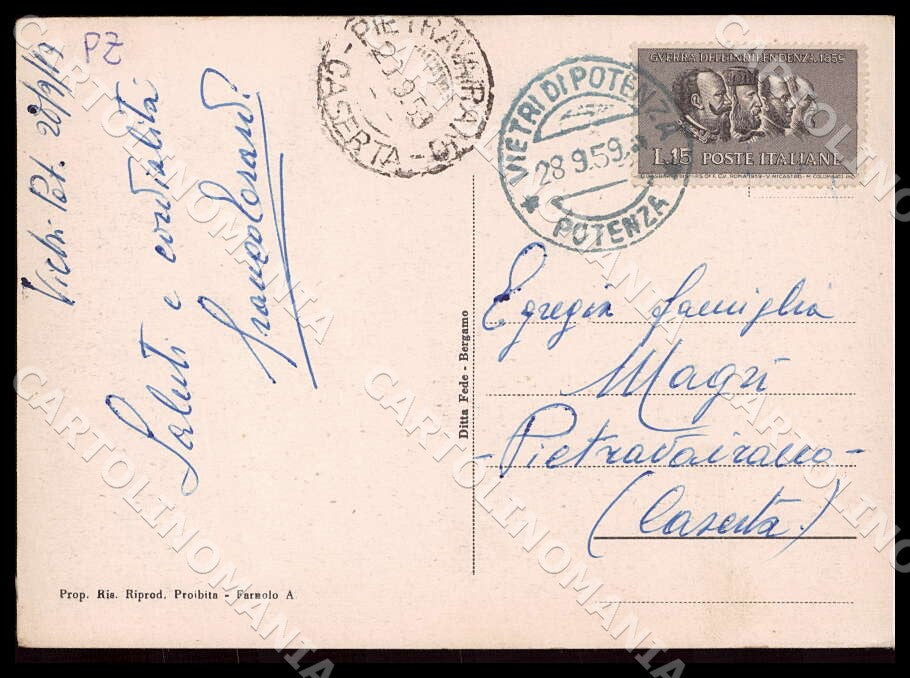 PZ
Vietri Pot. 28/9/59
Saluti e cordialità.
PIETRAVAIRANO
29.9.59
- CASERTA -
VIETRI DI POTENZA
28.9.59.
* POTENZA *
GUERRA DELL'INDIPENDENZA 1859
L.15 POSTE ITALIANE
Egregia famiglia
Magrì
- Pietravairano -
(Caserta)
Ditta Fede - Bergamo
Prop. Ris. Riprod. Proibita - Farnolo A.
CARTOLINOMANIA